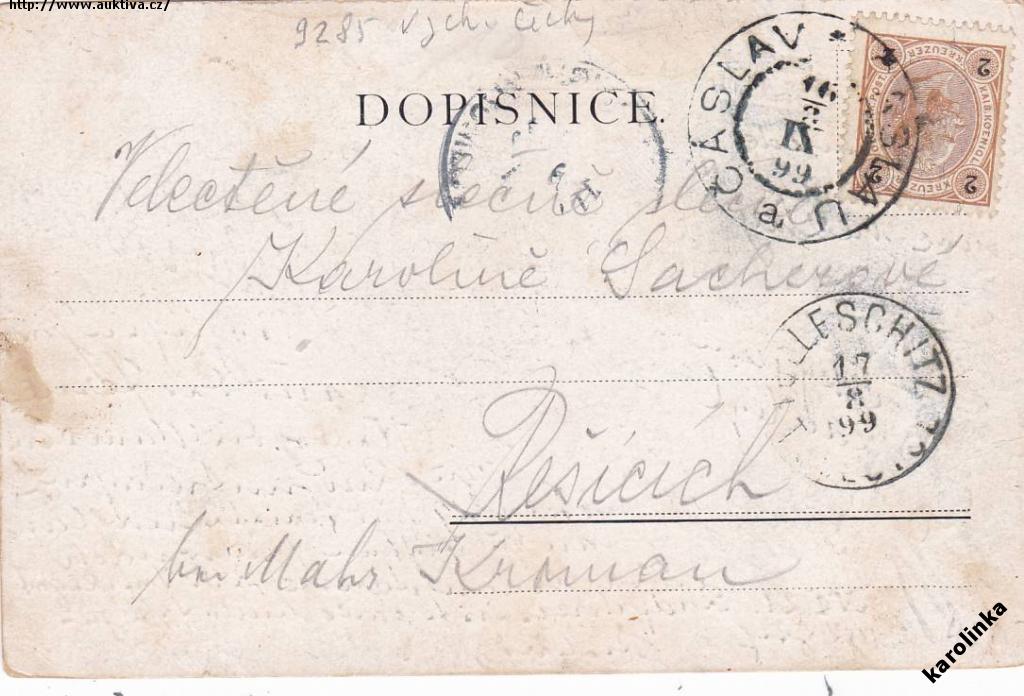 http://www.auktiva.cz/
9285 Vých. Čechy
DOPISNICE.
ČÁSLAV * * ČASLAU
16
IX
99
a
2 KREUZER
KAIS. KOENIGL.
KREUZ
2
Velectěné slečně
Karolíně Sacherově
LLESCHITZ
17
8
99
Rešicích
bei Mähr. Kroman
karolinka